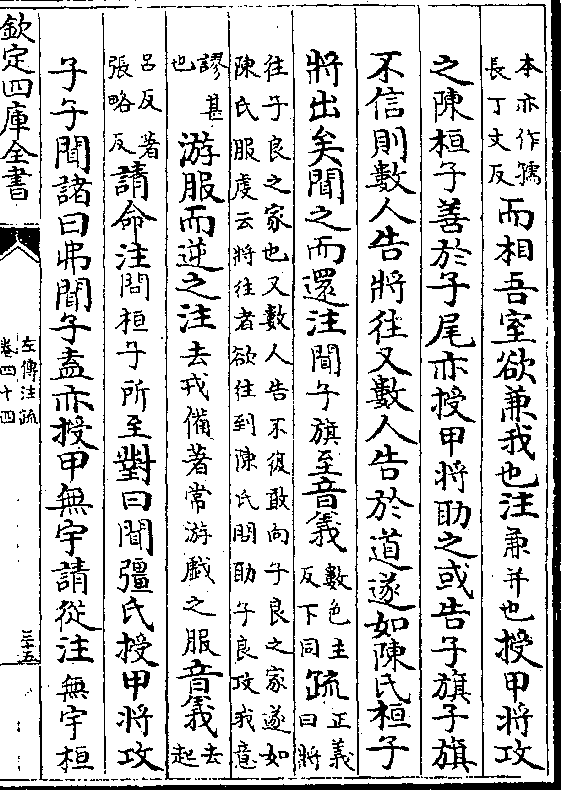 本亦作孺
長丁丈反
而相吾室欲兼我也注兼并也授甲將攻
之陳桓子善於子尾亦授甲將助之或告子旗子旗
不信則數人告將往又數人告於道遂如陳氏桓子
將出矣聞之而還注聞子旗至音義
數色主
反下同
疏
正義
曰將
往子良之家也又數人告不復敢向子良之家遂如
陳氏服虔云將往者欲往到陳氏問助子良攻我意
謬甚
也
游服而逆之注去戎備著常游戲之服音義
去
起
呂反著
張略反
請命注問桓子所至對曰聞彊氏授甲將攻
子子聞諸曰弗聞子盍亦授甲無宇請從注無宇桓
欽定四庫全書
左傳注疏
卷四十四
三十五